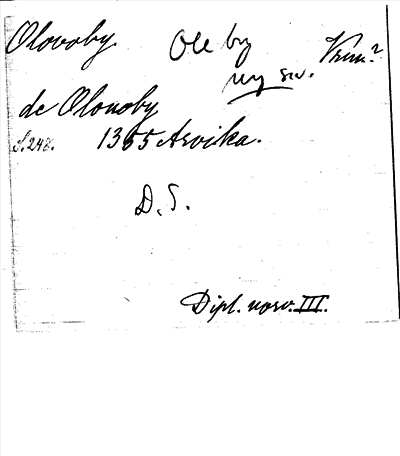 Olovoby. Ole by Vrm.?
ny sv.
de Olouoby
S. 248. 1355 Arvika.
D. S.
Dipl. norv. III.